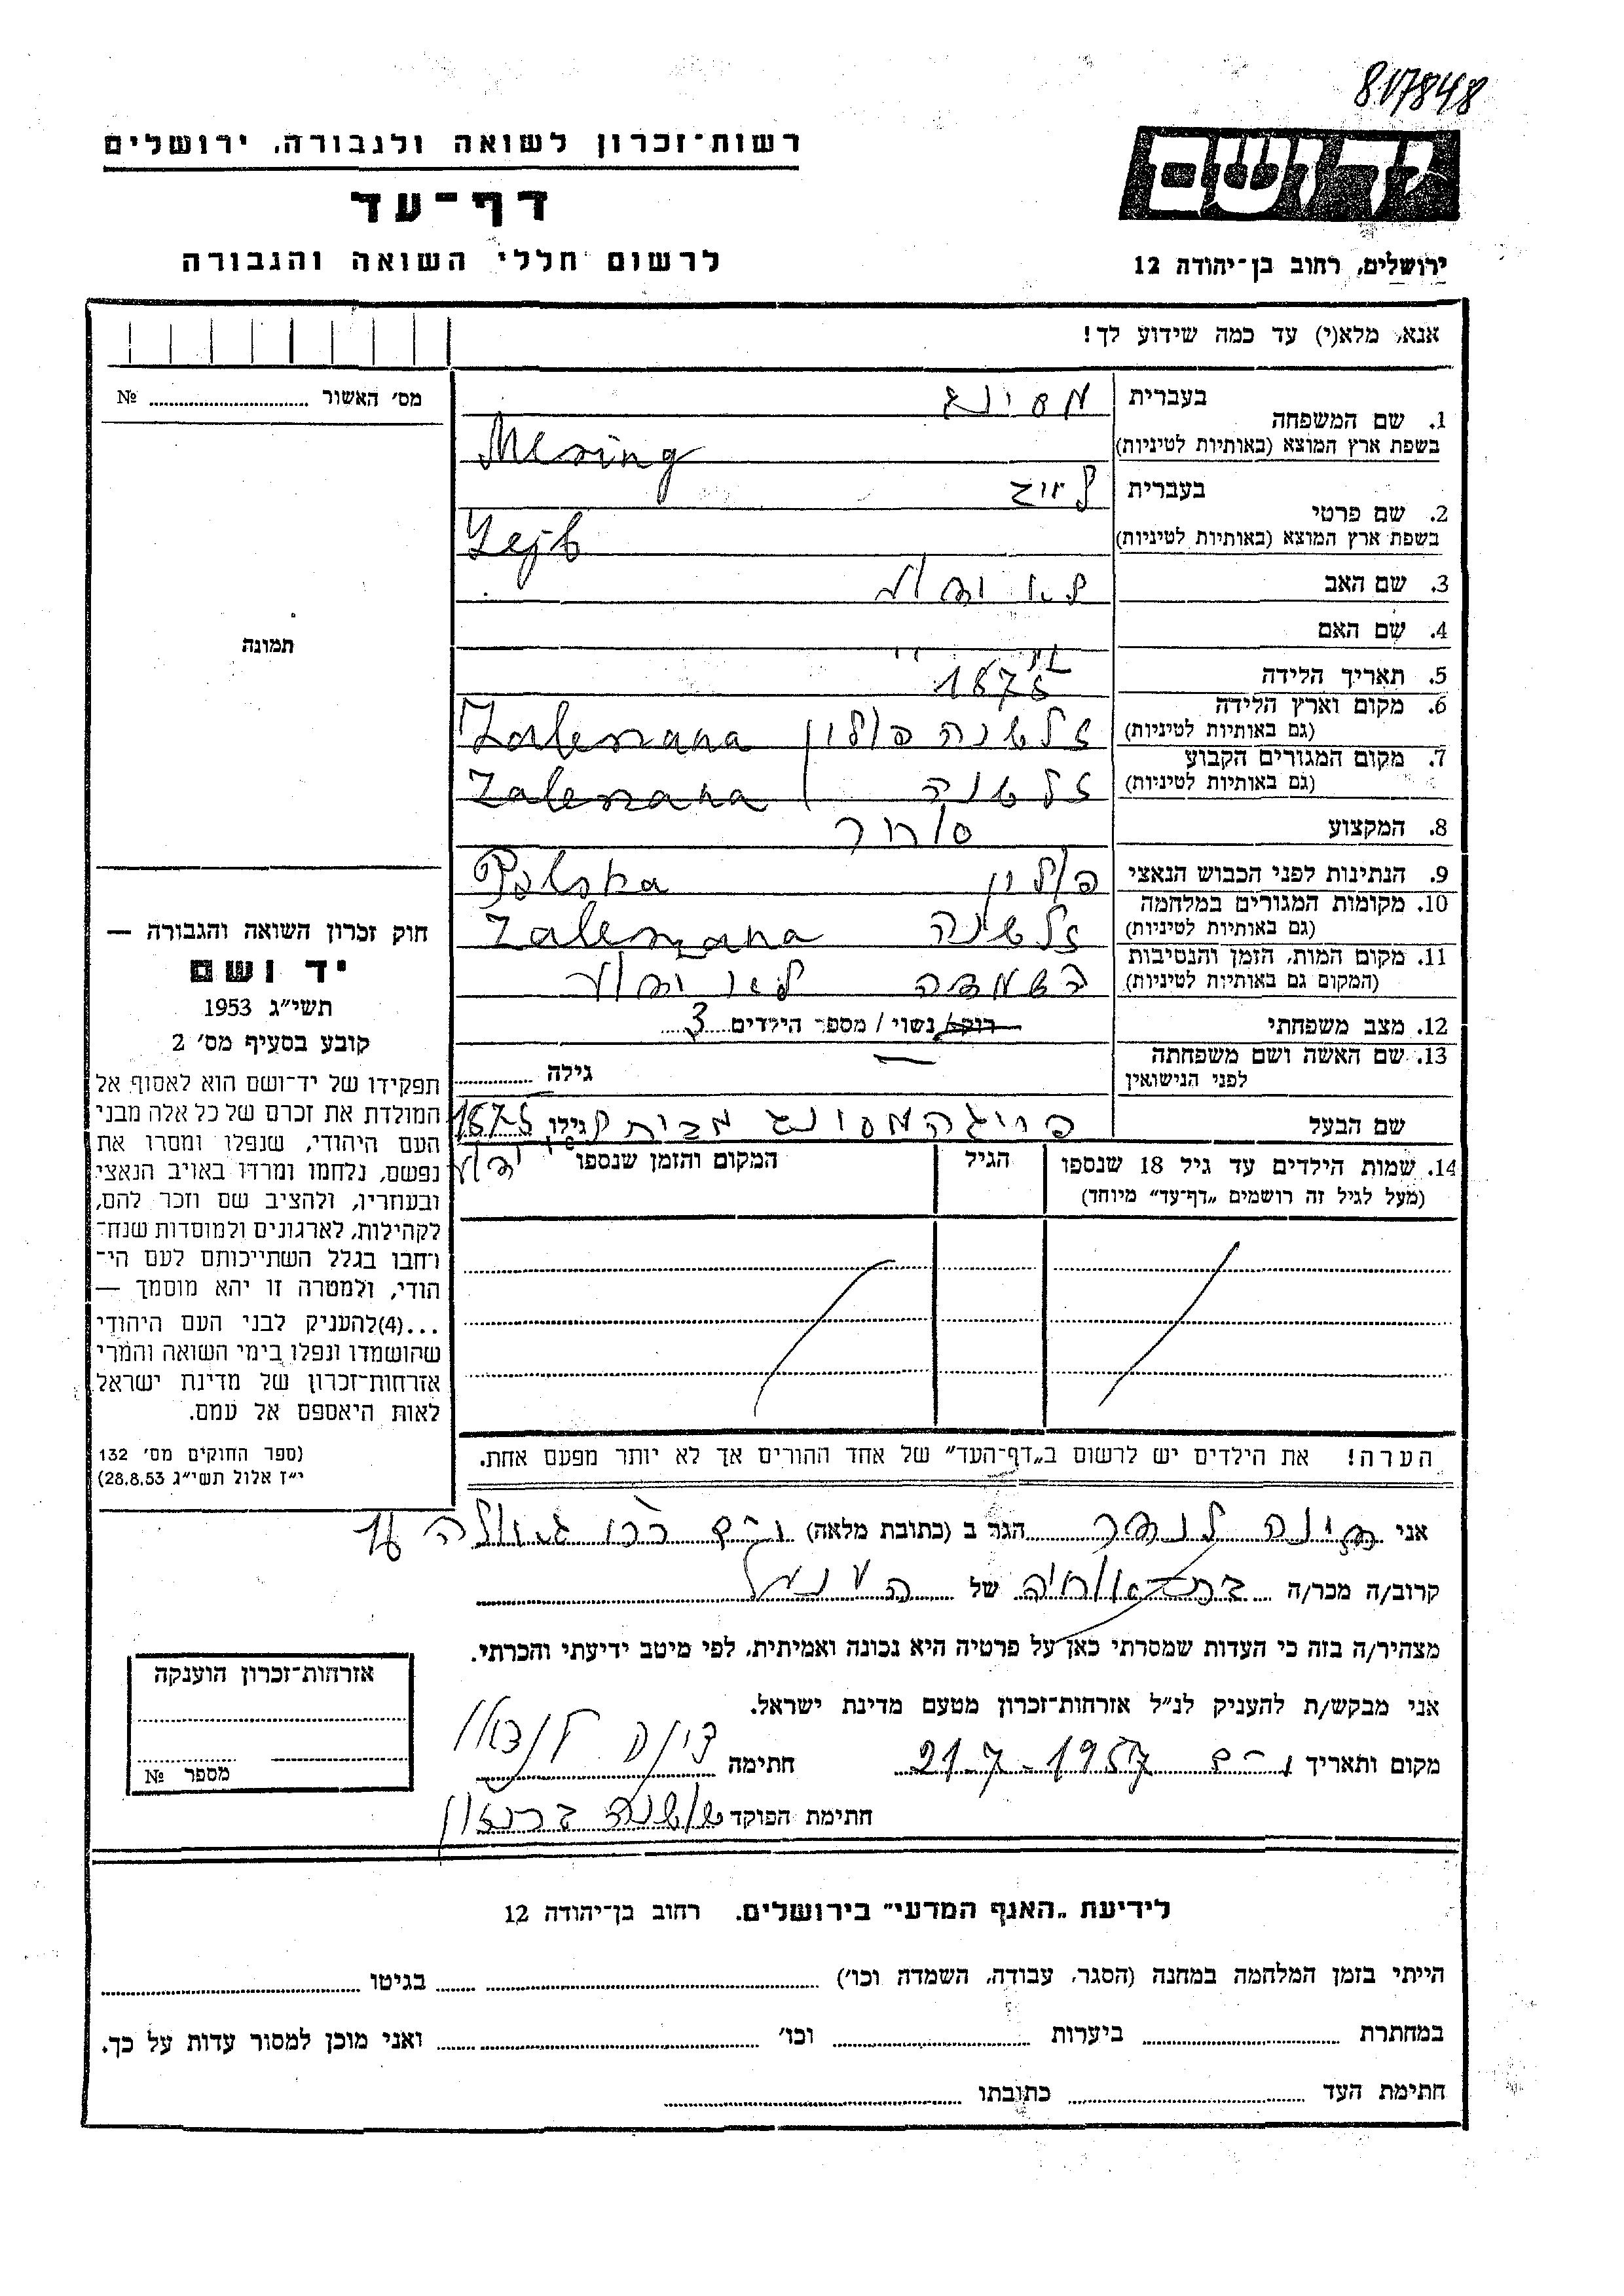 817848
יד ושם
רשות־זכרון לשואה ולגבורה, ירושלים
דף־עד
לרשום חללי השואה והגבורה
ירושלים, רחוב בן־יהודה 12
אנא, מלא(י) עד כמה שידוע לך!
מס׳ האשור № 
1. שם המשפחה בעברית מסינג
בשפת ארץ המוצא (באותיות לטיניות) Mesing
2. שם פרטי בעברית
בשפת ארץ המוצא (באותיות לטיניות) Lejb
3. שם האב לא ידוע
4. שם האם
5. תאריך הלידה 1875
6. מקום וארץ הלידה (גם באותיות לטיניות) פולין
7. מקום המגורים הקבוע (גם באותיות לטיניות)
8. המקצוע סוחר
9. הנתינות לפני הכבוש הנאצי פולין Polska
10. מקומות המגורים במלחמה (גם באותיות לטיניות)
11. מקום המות, הזמן והנסיבות (המקום גם באותיות לטיניות) השמדה לא ידוע
12. מצב משפחתי רווק/ נשוי / מספר הילדים 3
13. שם האשה ושם משפחתה לפני הנישואין גילה
שם הבעל מסינג מבית גילו 1875
לא ידוע
14. שמות הילדים עד גיל 18 שנספו (מעל לגיל זה רושמים „דף־עד״ מיוחד) הגיל המקום והזמן שנספו
תמונה
חוק זכרון השואה והגבורה —
יד ושם
תשי״ג 1953
קובע בסעיף מס׳ 2
תפקידו של יד־ושם הוא לאסוף אל
המולדת את זכרם של כל אלה מבני
העם היהודי, שנפלו ומסרו את
נפשם, נלחמו ומרדו באויב הנאצי
ובעוזריו, ולהציב שם וזכר להם,
לקהילות, לארגונים ולמוסדות שנח־
רחבו בגלל השתייכותם לעם הי־
הודי, ולמטרה זו יהא מוסמך —
...(4)להעניק לבני העם היהודי
שהושמדו ונפלו בימי השואה והמרי
אזרחות־זכרון של מדינת ישראל
לאות היאספם אל עמם.
(ספר החוקים מס׳ 132
י״ז אלול תשי״ג 28.8.53)
הערה! את הילדים יש לרשום ב„דף־העד״ של אחד ההורים אך לא יותר מפעם אחת.
אני הגר ב (כתובת מלאה) גאולה
קרוב/ה מכר/ה של הנ״ל
מצהיר/ה בזה כי העדות שמסרתי כאן על פרטיה היא נכונה ואמיתית, לפי מיטב ידיעתי והכרתי.
אני מבקש/ת להעניק לנ״ל אזרחות־זכרון מטעם מדינת ישראל.
מקום ותאריך 21.7.1957 חתימה
חתימת הפוקד
אזרחות־זכרון הוענקה
מספר №
לידיעת „האגף המדעי״ בירושלים. רחוב בן־יהודה 12
הייתי בזמן המלחמה במחנה (הסגר, עבודה, השמדה וכו׳) בגיטו
במחתרת ביערות וכו׳ ואני מוכן למסור עדות על כך.
חתימת העד כתובתו